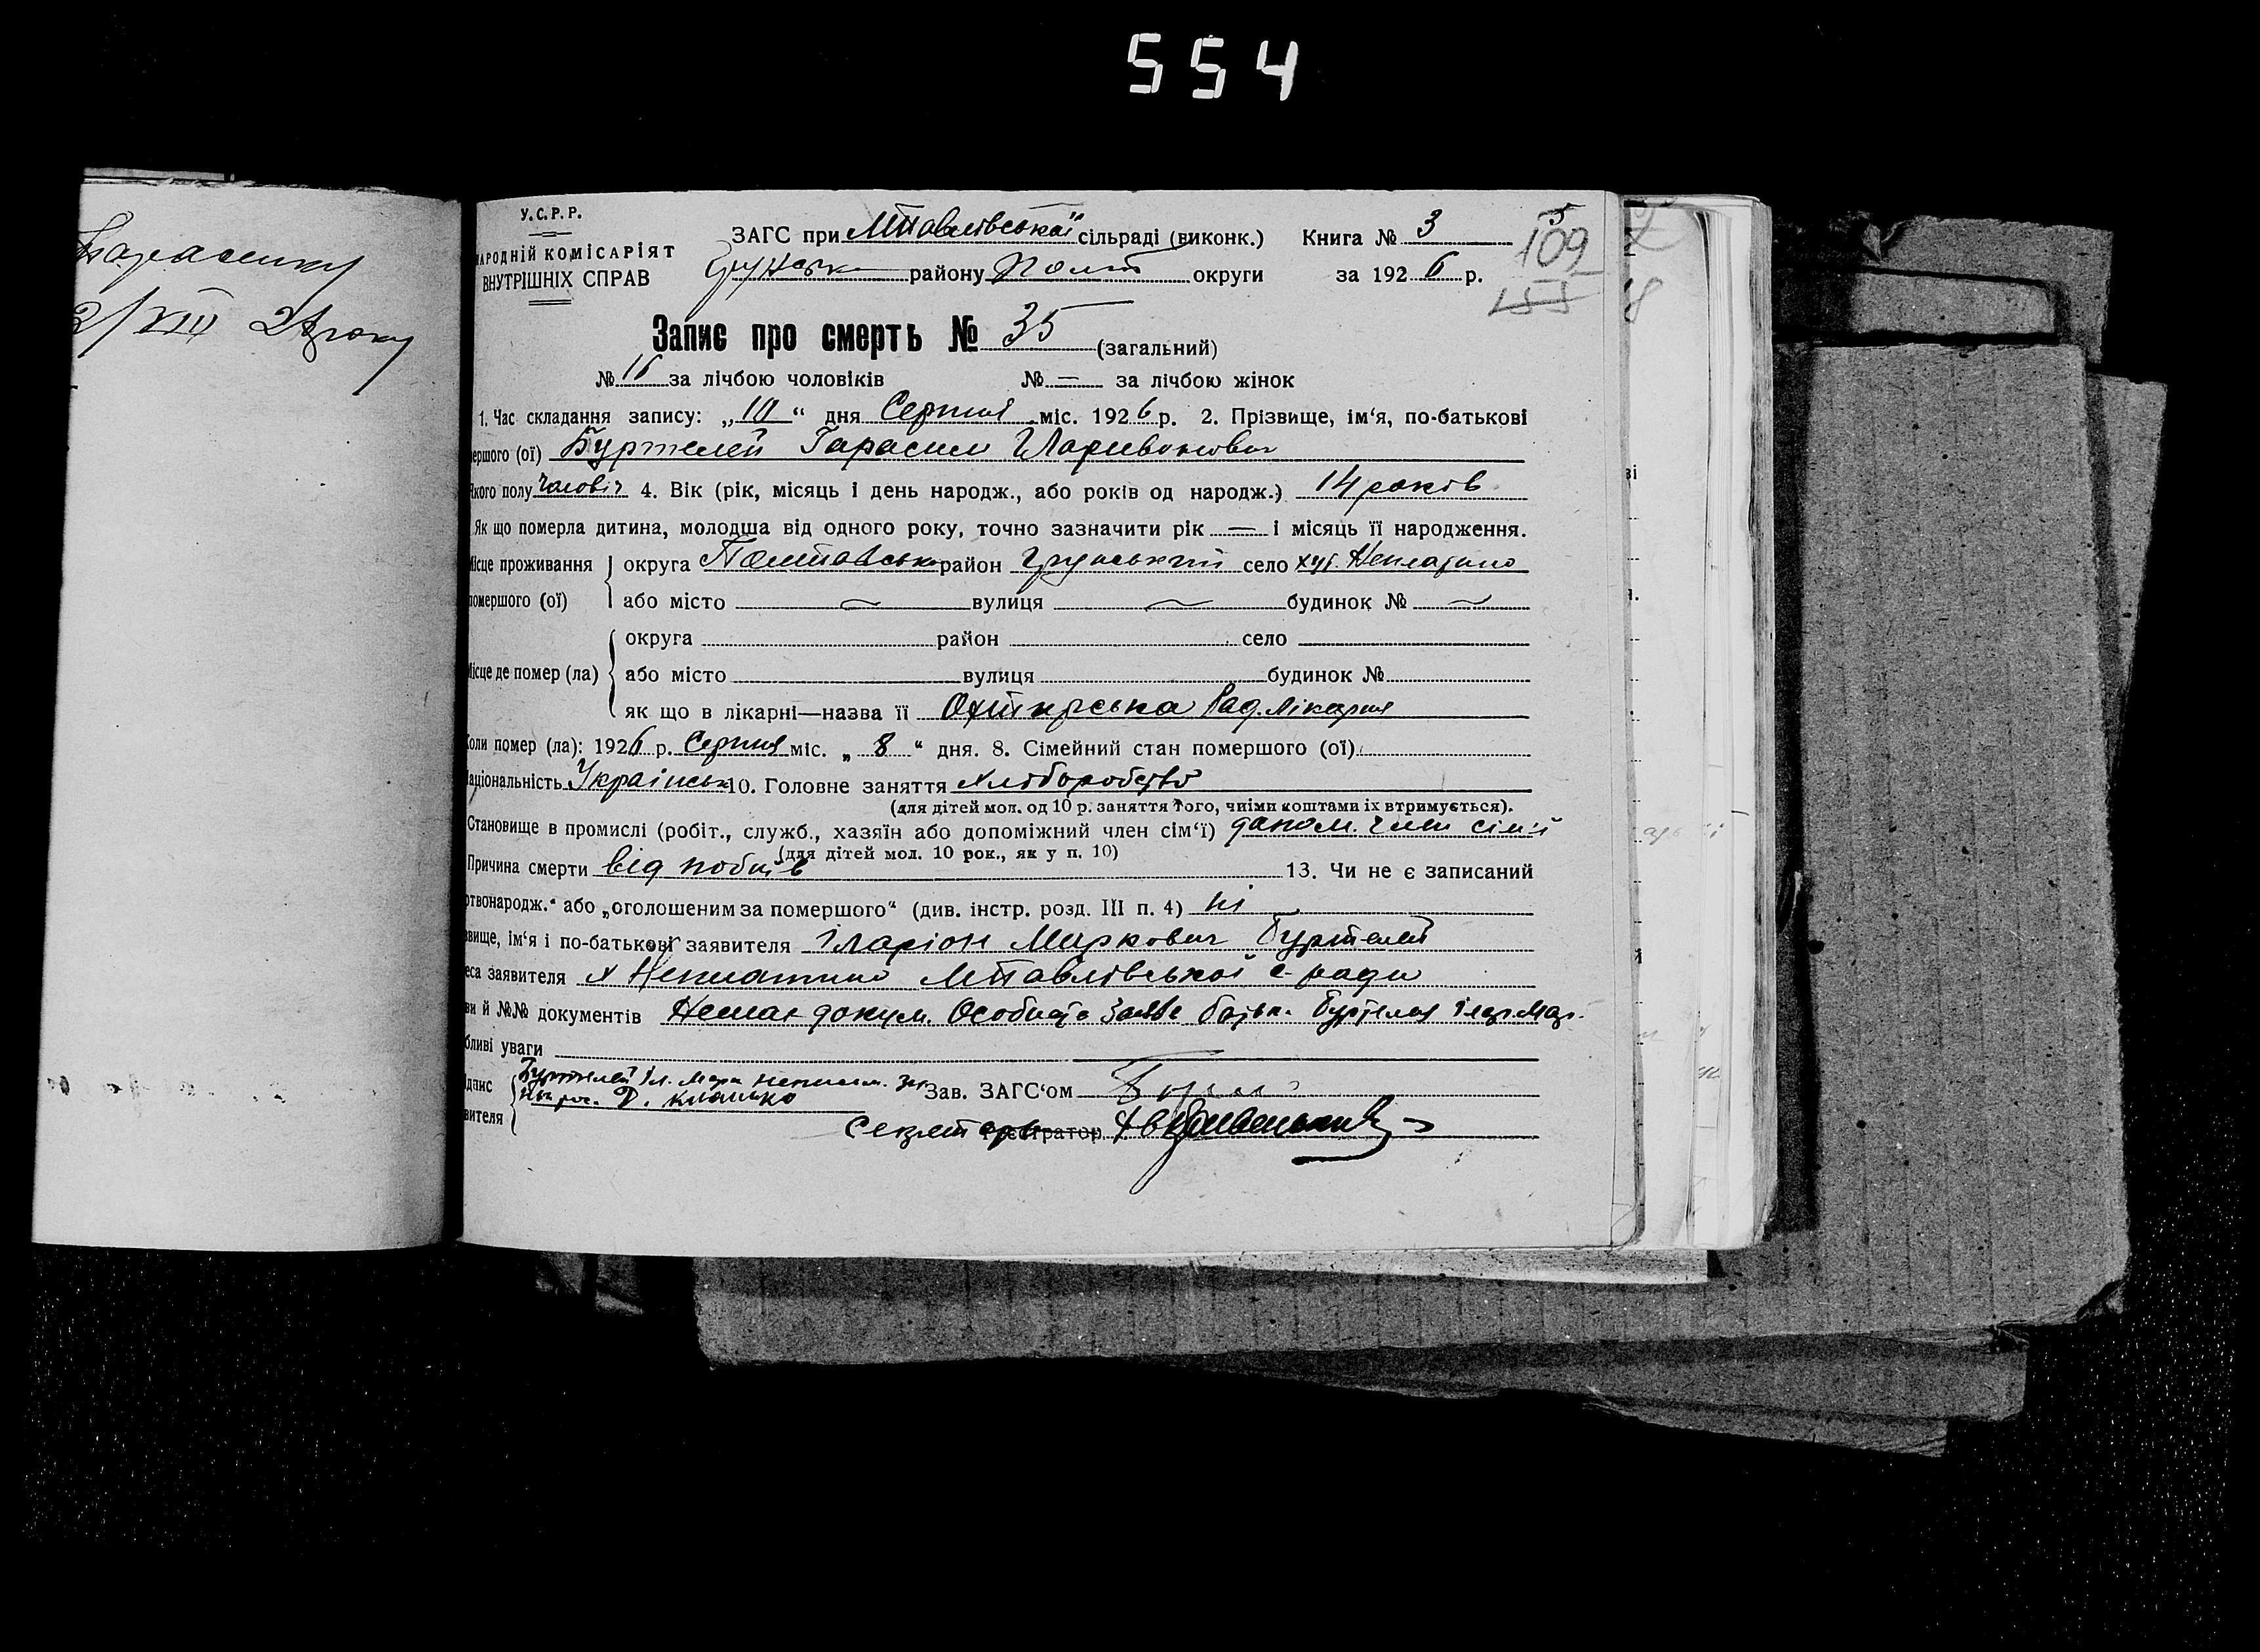 554
У.С.Р.Р.
НАРОДНІЙ КОМІСАРІЯТ
ВНУТРІШНІХ СПРАВ
ЗАГС при МПавлівської сільраді (виконк.) Книга № 3
Грунськ району Полт округи за 1926 р.
109
Запис про смерть № 35 (загальний)
№ 16 за лічбою чоловіків № — за лічбою жінок
1. Час складання запису: „10“ дня Серпня міс. 1926 р. 2. Прізвище, ім‘я, по-батькові
мершого (ої) Буртелей Гарасим Ларивонович
якого полу чоловіч 4. Вік (рік, місяць і день народж., або років од народж.) 14 років
Як що померла дитина, молодша від одного року, точно зазначити рік — і місяць її народження.
Місце проживання округа Полтавськ район Грунський село хут.
помершого (ої) або місто вулиця будинок №
округа район село
Місце де помер (ла) або місто вулиця будинок №
як що в лікарні—назва її Охтирська Рад. Лікарня
Коли помер (ла): 1926 р. Серпня міс. „8“ дня. 8. Сімейний стан помершого (ої)
Національність Українськ 10. Головне заняття Хліборобство
(для дітей мол. од 10 р. заняття того, чиїми коштами їх втримується).
Становище в промислі (робіт., служб., хазяїн або допоміжний член сім‘ї) допом. член сім'ї
(для дітей мол. 10 рок., як у п. 10)
Причина смерти від побоїв 13. Чи не є записаний
ртвонародж.“ або „оголошеним за помершого“ (див. інстр. розд. III п. 4) ні
звище, ім‘я і по-батькові заявителя Іларіон Маркович Буртелей
еса заявителя х МПавлівської с-ради
ви й №№ документів Немає докум. Особиста заява батьк. Буртелея Ілар. Мар.
бливі уваги
дпис Буртелей Іл. Марк неписьм. за
вителя Д.
Зав. ЗАГС‘ом
Секретар Реєстратор